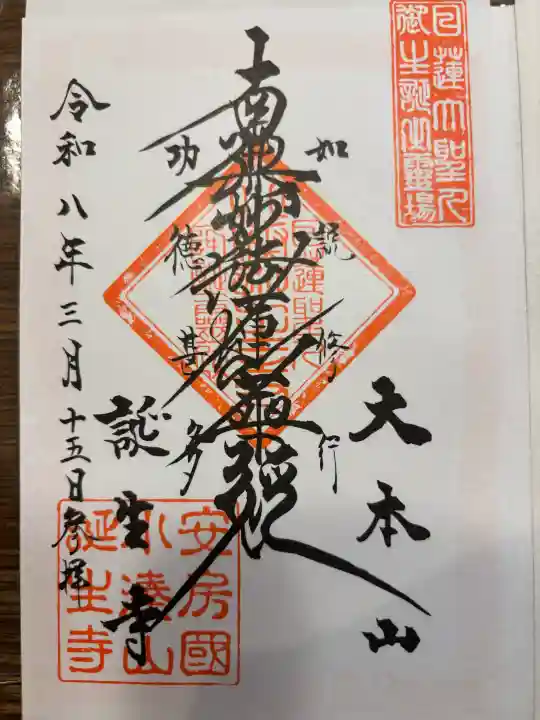 日蓮大聖人
御生誕之霊場
大本山
如説修行
南無妙法蓮華経
功徳甚多
誕生寺
安房國
小湊山
誕生寺
令和八年三月十五日参拝